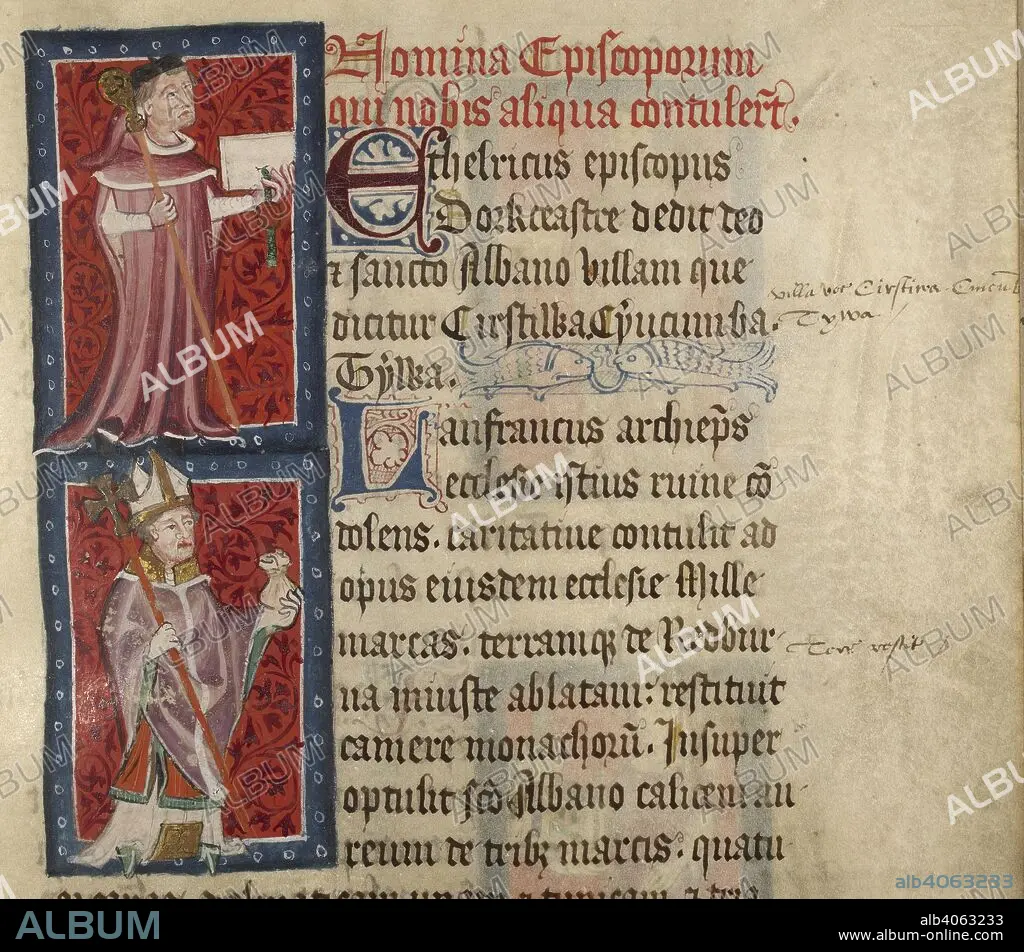 Nomina Episcoporum
qui nobis aliqua contulert̄.
Ethelricus episcopus
Dorkceastre dedit deo
⁊ sancto Albano villam que
dicitur Cirstiwa, Cyucumba.
Tylwa.
Tywa.
Lanfrancus archiep̄s
ecclesie istius ruine cō
dolens. caritatiue contulit ad
opus eiusdem ecclesie Mille
marcas. terramq; de Redbur
na iniuste ablatam: restituit
camere monachorū. Insuper
optulit sc̄o Albano calicem au
reum de trib; marcis. quatu
ALBUM
alb4063233
ALBUM
alb4063233
www.album-online.com